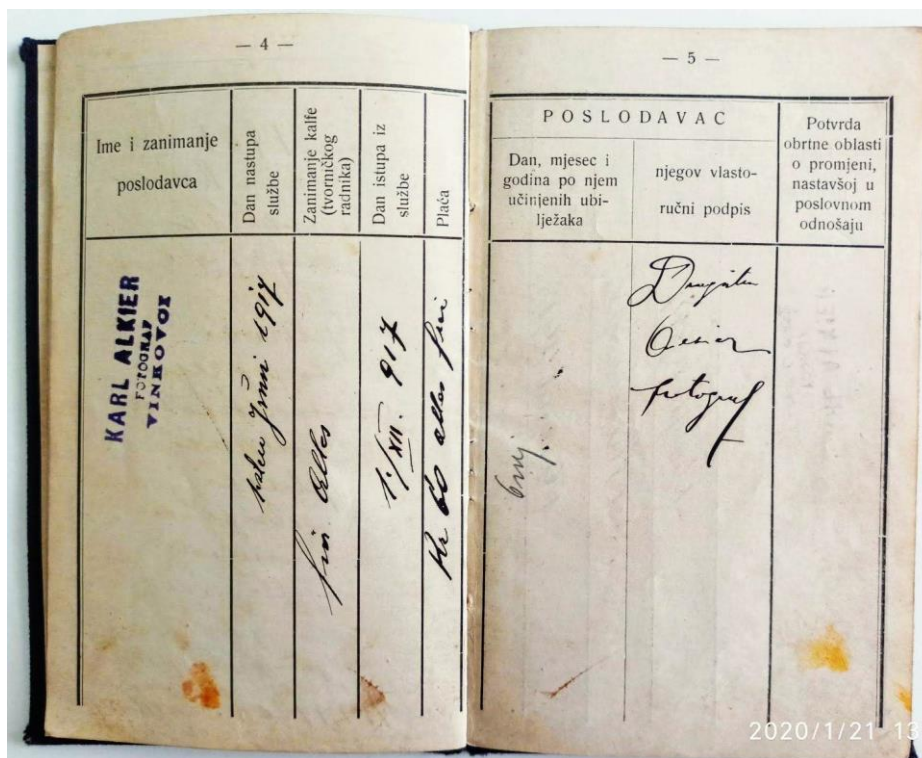 — 4 —
Ime i zanimanje
poslodavca
Dan nastupa
službe
Zanimanje kalfe
(tvorničkog
radnika)
Dan istupa iz
službe
Plaća
KARL ALKIER
FOTOGRAF
VINKOVCI
1917
für Alles
1./XII. 917
Kr 60 alles frei
— 5 —
POSLODAVAC
Dan, mjesec i
godina po njem
učinjenih ubi-
lježaka
njegov vlasto-
ručni podpis
Potvrda
obrtne oblasti
o promjeni,
nastavšoj u
poslovnom
odnošaju
fotograf
2020/1/21 13